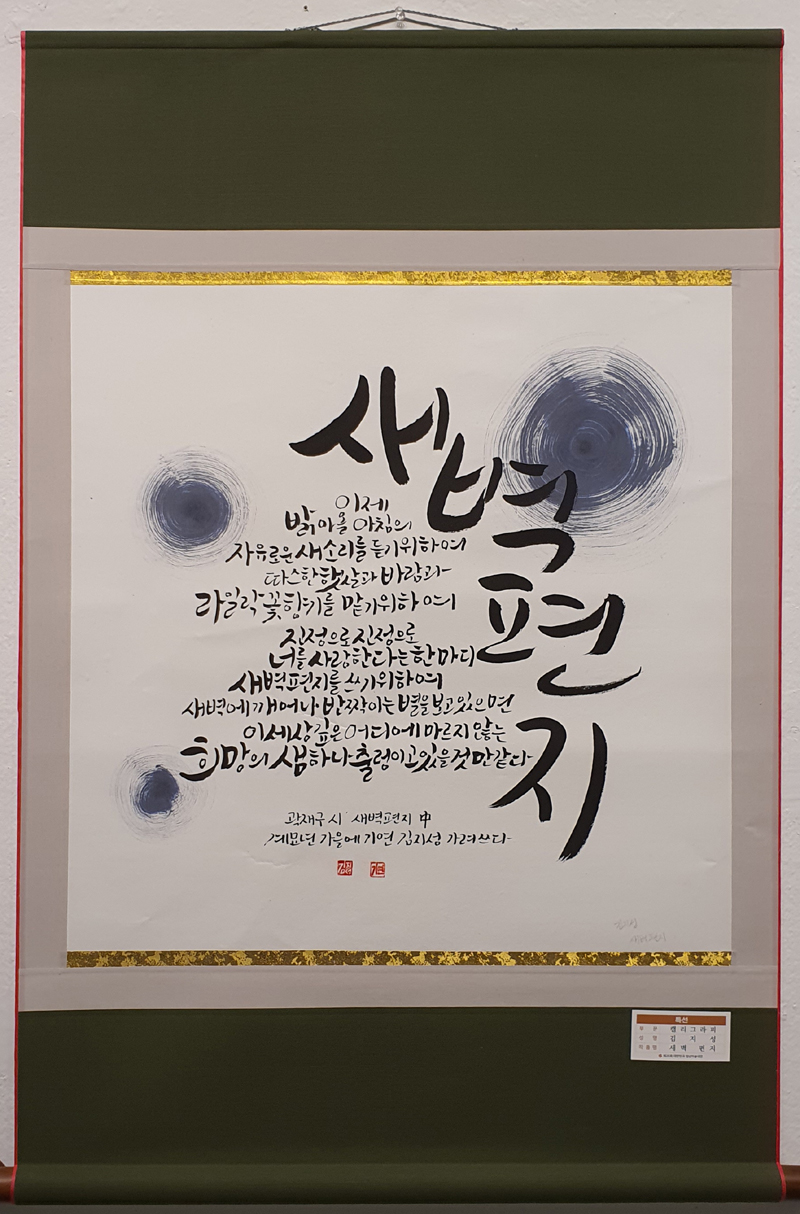 새벽편지
이제
밝아올 아침의
자유로운 새소리를 듣기위하여
따스한 햇살과 바람과
라일락 꽃향기를 맡기위하여
진정으로 진정으로
너를 사랑한다는 한마디
새벽편지를 쓰기위하여
새벽에 깨어나 반짝이는 별을 보고 있으면
이세상 깊은 어디에 마르지 않는
희망의 샘하나 출렁이고 있을것만 같다
곽재구 시 새벽편지 中
계묘년 가을에 기연 김지성 가려쓰다
특선
부 문 캘리그라피
성 명 김 지 성
작품명 새 벽 편 지